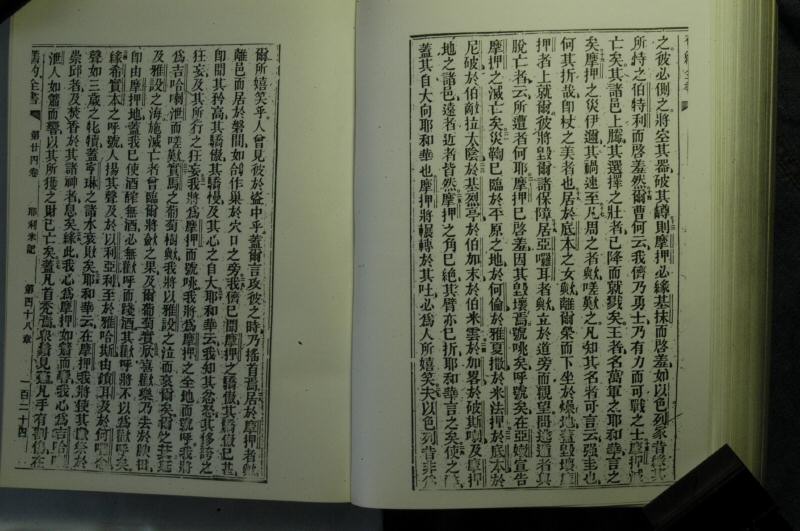 之彼必側之將空其器破其罇則摩押必緣基抹而啓羞如以色列家昔緣其
所恃之伯特利而啓羞然爾曹何云我儕乃勇士乃有力而可戰之士摩押
亡矣其諸邑上騰其選擇之壯者已降而就戮矣王者名萬軍之耶和華言之
矣摩押之災伊邇其禍速至凡周之者歟嗟歎之凡知其名者可言云强圭也
何其折哉卽杖之美者也居於底本之女歟離爾榮而下坐於燥地蓋毀壞
押者上就爾彼將毀爾諸保障居亞囉耳者歟立於道旁而觀望問逃遁者與
脫亡者云所遭者何耶摩押已啓羞因其毀壞焉號咷矣呼號矣在亞嫩宣告
摩押之滅亡矣災鞫已臨於平原之地於何倫於雅夏撒於米法押於底本於
尼破於伯敵拉太陰於基烈亭於伯加末於伯米雲於加畧於破斯喇及摩押
地之諸邑遠者近者皆然摩押之角已絕其臂亦已折耶和華言之矣使之
蓋其自大向耶和華也摩押將輾轉於其吐必爲人所嬉笑夫以色列昔非
爾所嬉笑乎人曾見彼於盜中乎蓋爾言攻彼之時乃搖首焉居於摩押者歟
離邑而居於磐間如鴿作巢於穴口之旁我儕已聞摩押之驕傲其驕傲已甚
卽聞其矜高其驕傲其驕慢及其心之自大耶和華云我知其忿怒其侈誇之
狂妄及其所行之狂妄我將爲摩押而號咷我將爲摩押之全地而號咷我將
爲吉哈喇泄而嗟歎實馬之葡萄樹歟我將以雅設之泣而哀爾矣爾之
及雅設之海施滅亡者曾臨爾將斂之果及爾葡萄實欣喜歡樂乃去於
卽由摩押地蓋我已使酒醡無酒必無歡呼而踐酒其歡呼將不以爲歡呼矣
緣希實本之呼號人揚其聲及於以利亞利至於雅哈斯由鎖耳及於何
聲如三歲之牝犢蓋寧琳之諸水哀財矣耶和華云在摩押我將使其祭於
崇邱者及焚香於其諸神者息矣緣此我心爲摩押如簫而響我心爲吉哈
泄人如簫而響以其所獲之財已亡矣蓋凡首禿焉凡手有
舊約全書 第廿四卷 耶利米記 第四十八章 一百二十四